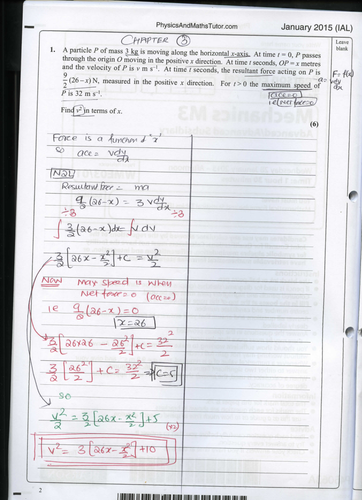 PhysicsAndMathsTutor.com
January 2015 (IAL)
Leave
blank
CHAPTER 3
1. A particle P of mass 3 kg is moving along the horizontal x-axis. At time t = 0, P passes
through the origin O moving in the positive x direction. At time t seconds, OP = x metres
and the velocity of P is v m s⁻¹. At time t seconds, the resultant force acting on P is
9/2 (26 – x) N, measured in the positive x direction. For t > 0 the maximum speed of
P is 32 m s⁻¹.
F = f(x)
a = vdv/dx
acc=0
Find v² in terms of x.
(6)
Force is a function of "x"
so acc = vdv/dx
N2L
Resultant force = ma
9/2 (26-x) = 3 vdv/dx
÷3 ÷3
∫ 3/2 (26-x) dx = ∫ v dv
3/2 [26x - x²/2] + C = v²/2
NOW Max speed is when
Net force = 0 (acc=0)
ie 9/2 (26-x) = 0
x = 26
3/2 [26x26 - 26²/2] + C = 32²/2
3/2 [26²/2] + C = 32²/2 ⇒ C=5
so
v²/2 = 3/2 [26x - x²/2] + 5 (x2)
v² = 3 [26x - x²/2] + 10
2